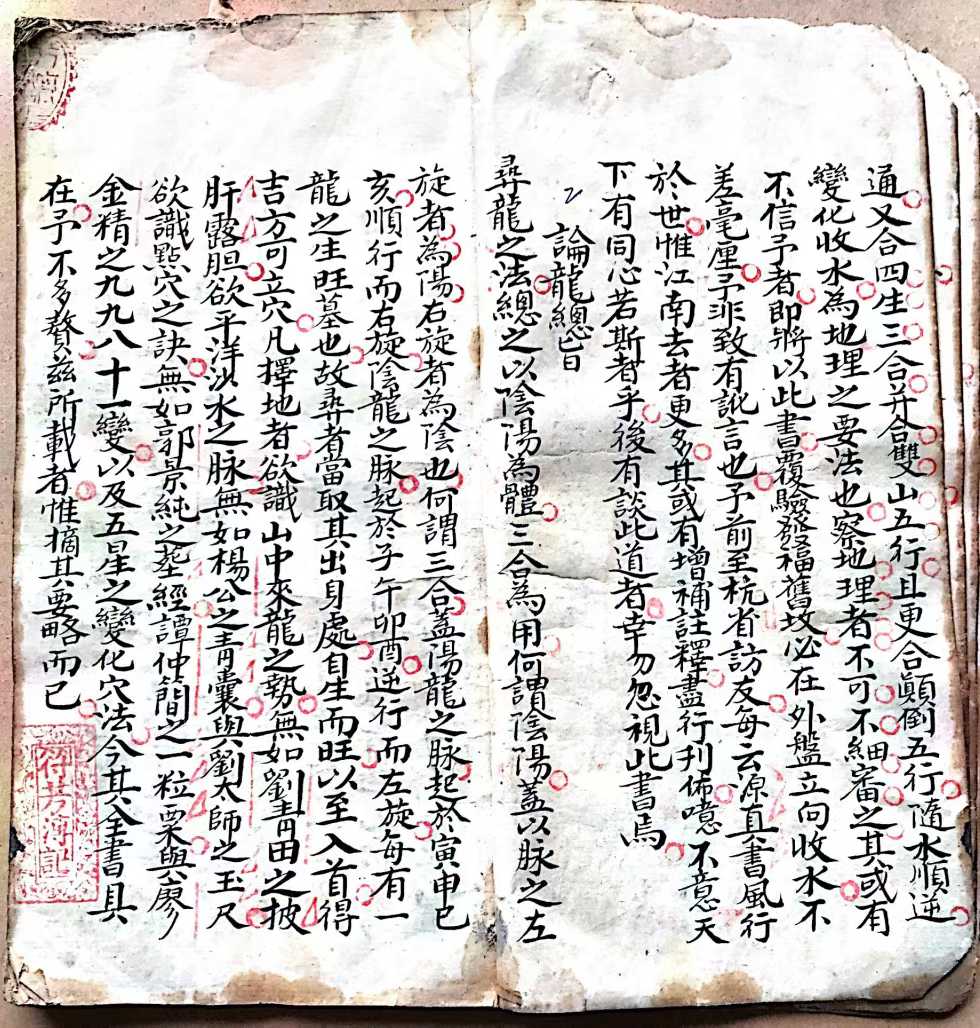 通又合四生三合并合雙山五行且更合顛倒五行隨水順逆
變化收水為地理之要法也察地理者不可不細審之其或有
不信予者即將以此書覆驗發福舊坟必在外盤立向收水不
差毫厘予非致有訛言也予前至杭省訪友每云源真書風行
於世惟江南去者更多其或有增補註釋盡行刊佈噫不意天
下有同心若斯者乎後有談此道者幸勿忽視此書焉
論龍總旨
尋龍之法總之以陰陽為體三合為用何謂陰陽蓋以脉之左
旋者為陽右旋者為陰也何謂三合蓋陽龍之脉起於寅申巳
亥順行而右旋陰龍之脉起於子午卯酉逆行而左旋每有一
龍之生旺墓也故尋者當取其出身處自生而旺以至入首得
吉方可立穴凡擇地者欲識山中來龍之勢無如劉青田之披
肝露胆欲平洋沙水之脉無如楊公之青囊與劉太師之玉尺
欲識點穴之訣無如郭景純之葬經譚仲簡之一粒粟與廖
金精之九九八十一變以及五星之變化穴法今其全書具
在予不多贅茲所載者惟摘其要略而已